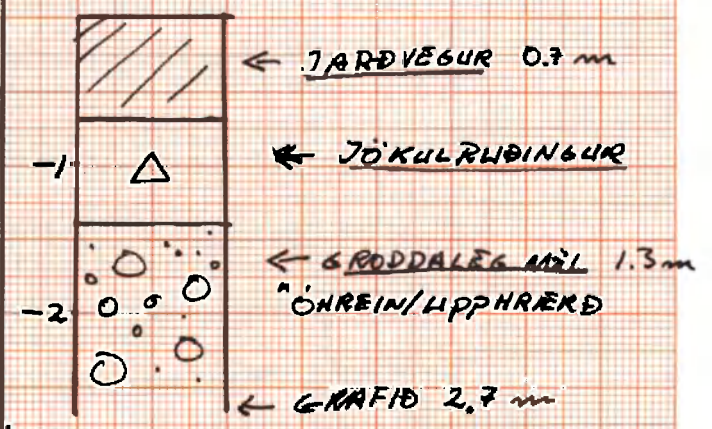 JARÐVEGUR 0.7 m
-1
JÖKULRUÐINGUR
GRODDALEG MÖL 1.3 m
-2
"ÓHREIN/UPPHRÆRÐ
GRAFIÐ 2.7 m